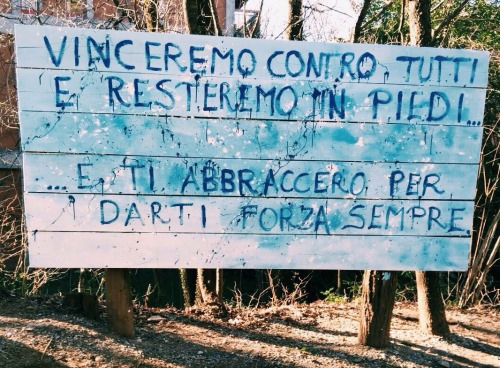 VINCEREMO CONTRO TUTTI
E RESTEREMO IN PIEDI...
... E TI ABBRACCERO PER
DARTI FORZA SEMPRE.